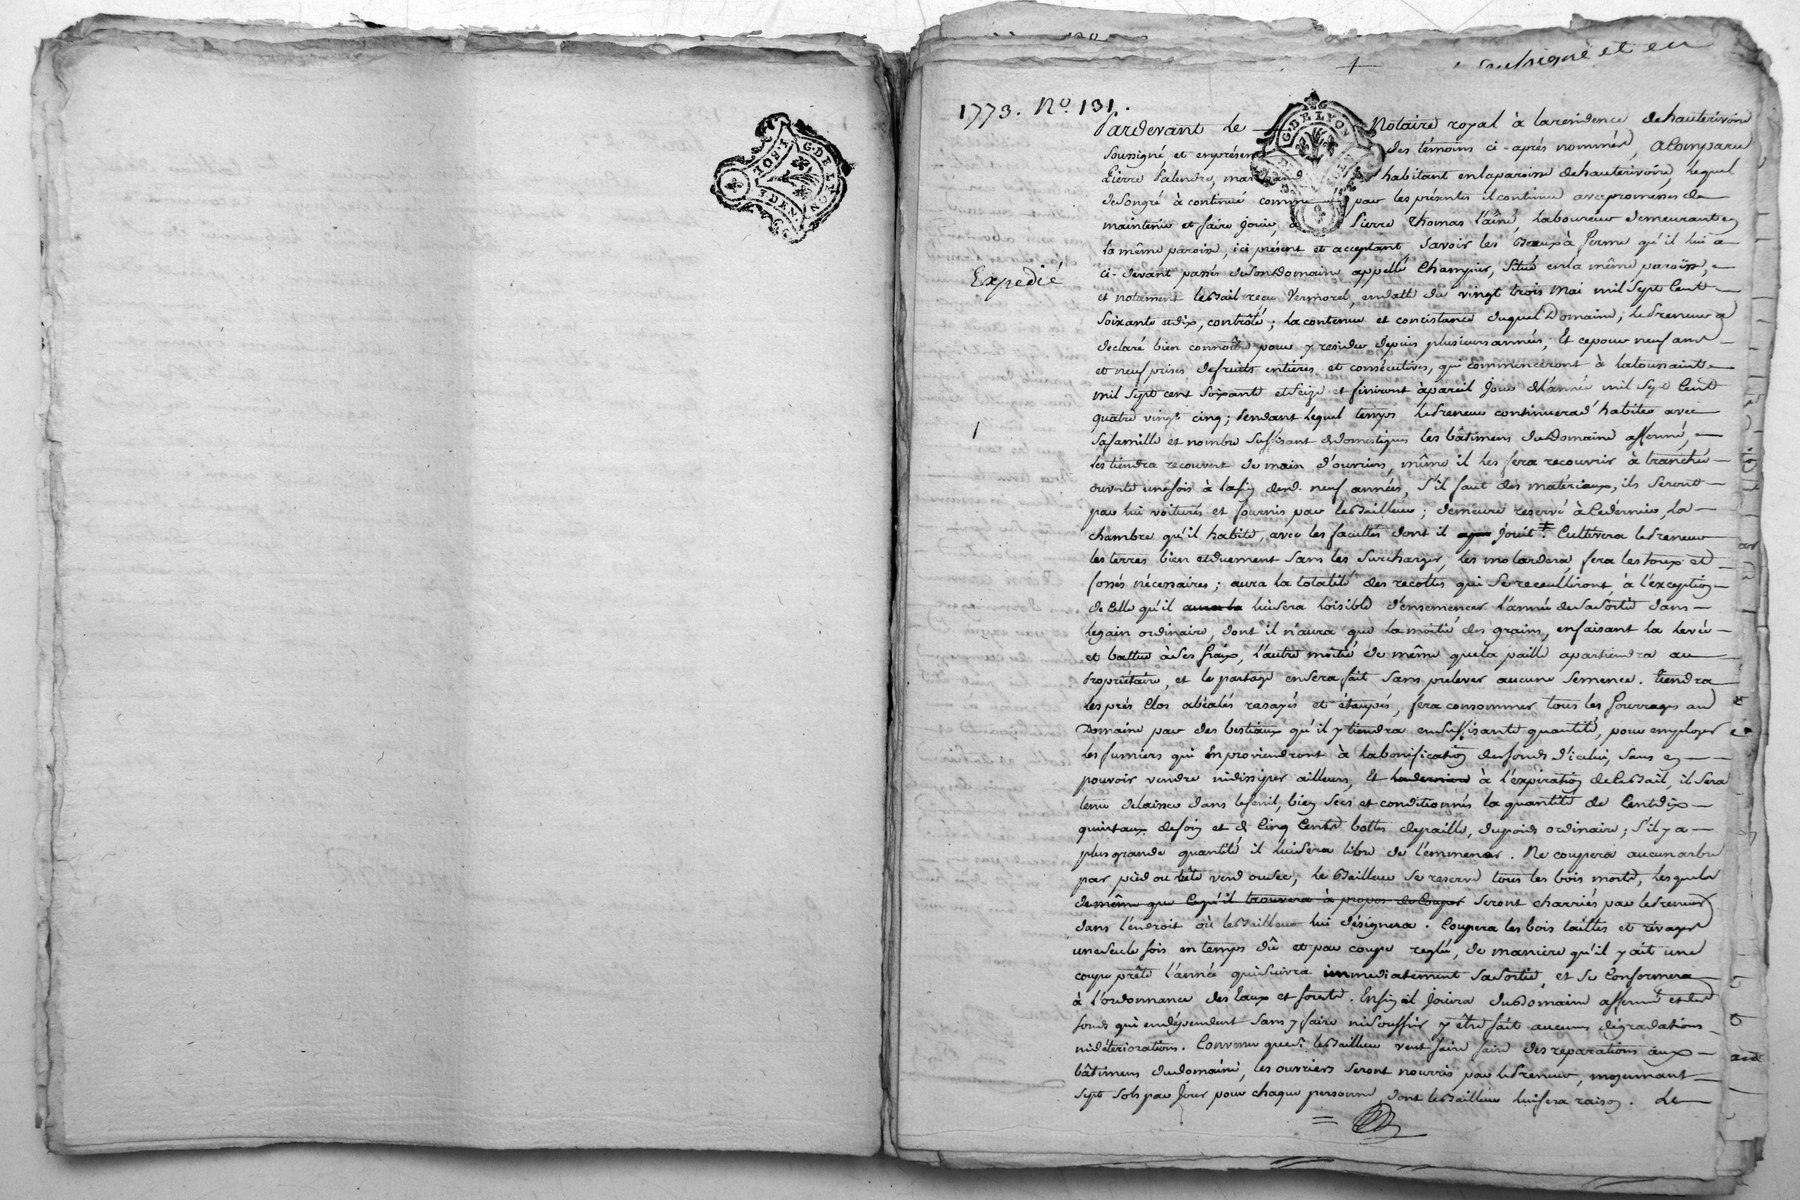 G. DE LYON
1. SOL
DEN.
soussigné et en
1773. No. 131.
Pardevant Le Notaire royal à la residence de hauterivoire
Soussigné, et en présence des témoins ci-après nommés, a Comparu
Pierre Palendre, marchand habitant en la paroisse de hauterivoire, lequel
de son gré à continué comme par les présentes il continue avec promesse de
maintenir et faire jouir, à Pierre Thomas l'aîné laboureur demeurant en
la même paroisse, ici présent et acceptant Savoir les Beaux à ferme qu'il lui a
Expedié
ci-devant passés de son Domaine appellé Champier, Situé en la même paroisse,
et notament le Bail reçu Vermorel, en datte du vingt trois Mai mil Sept Cent
Soixante et dix, contrôlé; la contenue et consistance duquel Domaine, le Preneur a
declaré bien connoître pour y resider depuis plusieurs années; Et ce pour neuf ans
et neuf prises de fruits entieres et consécutives, qui commenceront à la toussaint
mil Sept cent Soixante et Seize et finiront à pareil jour de l'année mil Sept Cent
quatre vingt cinq; Pendant lequel temps le Preneur continuera d'habiter avec
Sa famille et nombre Suffisant de domestiques les bâtimens du Domaine affermé,
les tiendra recouvert de main d'ouvriers, même il les fera recouvrir à tranchée
ouverte une fois à la fin desd. neuf années, S'il faut des matériaux, ils Seront
par lui voiturés et fournis par le Bailleur; demeure reservé à Ce dernier, la
chambre qu'il habite, avec les facultés dont il jouit ‡. Cultivera le Preneur
les terres bien et duement Sans les Surcharger, les molardera, fera les toux et
fossés nécessaires; aura la totalité des recoltes qui Se receulliront, à l'exception
de Celle qu'il aura la lui Sera loisible d'ensemencer l'année de Sa Sortie dans
le gain ordinaire, dont il n'aura que la moitié des grains, en faisant la levée
et battue à Ses fraix, l'autre moitié de même que la paille apartiendra au
Propriétaire, et le partage en Sera fait Sans prelever aucune Semence. tiendra
les prés Clos abéalés rasayés et étaupés, fera consommer tous les fourrages au
Domaine par des bestiaux qu'il y tiendra en Suffisante quantité, pour employer
les fumiers qui en proviendront à la bonification des fonds d'icelui, Sans en
pouvoir vendre ni dissiper ailleurs, Et la derniere à l'expiration de Ce Bail, il Sera
tenu de laisser dans le fenil, bien Secs et conditionnés la quantité de Cent dix
quintaux de foin et de Cinq Cents bottes de paille, du poids ordinaire; S'il y a
plus grande quantité il lui Sera libre de l'emmener. Ne coupera aucun arbre
par pied ou tête verd ou Sec; le Bailleur Se reserve tous les bois morts, lesquels
de même que Ce qu'il trouvera à propos de Couper Seront charriés par le Preneur
dans l'endroit où le Bailleur lui désignera. Coupera les bois taillés et rivages
une Seule fois en temps dû et par coupe reglée, de maniere qu'il y ait une
coupe prête l'année qui Suivra immediatement Sa Sortie, et Se Conformera
à l'ordonnance des Eaux et forêts. Enfin il Jouira du Domaine affermé et des
fonds qui en dépendent Sans y faire ni Souffrir y être fait aucunes dégradations
ni détériorations. Convenu que Si le Bailleur veut faire faire des reparations aux
bâtimens du domaine, les ouvriers Seront nourris par le Preneur, moyennant
Sept Sols par Jour pour chaque personne, dont le Bailleur lui fera raison. Le